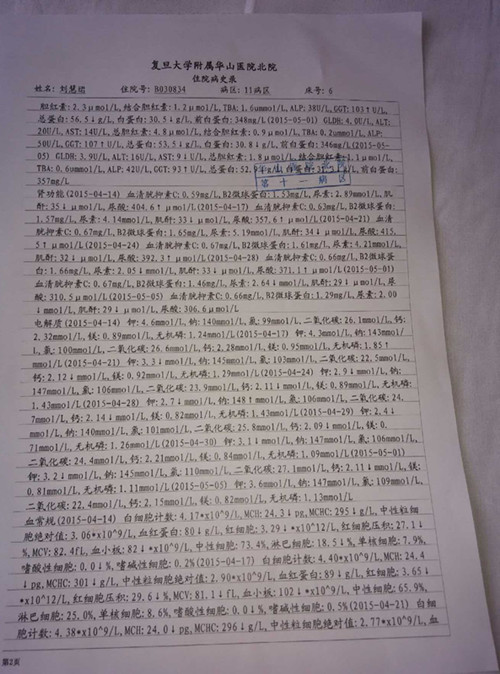 复旦大学附属华山医院北院
住院病史录
姓名: 刘慧珺 住院号: B030834 病区: 11病区 床号: 6
胆红素: 2.3μmol/L, 结合胆红素: 1.2μmol/L, TBA: 1.6μmmol/L, ALP: 38U/L, GGT: 103↑U/L,
总蛋白: 56.5↓g/L, 白蛋白: 30.5↓g/L, 前白蛋白: 348mg/L (2015-05-01) GLDH: 4.0U/L, ALT:
20U/L, AST: 14U/L, 总胆红素: 4.8μmol/L, 结合胆红素: 0.9μmol/L, TBA: 0.2ummol/L, ALP:
50U/L, GGT: 107↑U/L, 总蛋白: 53.5↓g/L, 白蛋白: 30.8↓g/L, 前白蛋白: 346mg/L (2015-05-
05) GLDH: 3.9U/L, ALT: 16U/L, AST: 9↓U/L, 总胆红素: 1.8μmol/L, 结合胆红素: 1.1μmol/L,
TBA: 0.6ummol/L, ALP: 42U/L, GGT: 93↑U/L, 总蛋白: 52. g/L, 前白蛋白:
357mg/L
第十一病区
肾功能 (2015-04-14) 血清胱抑素C: 0.59mg/L, B2微球蛋白: 1.53mg/L, 尿素: 2.89mmol/L, 肌
酐: 35↓μmol/L, 尿酸: 404.6↑μmol/L (2015-04-17) 血清胱抑素C: 0.63mg/L, B2微球蛋白:
1.57mg/L, 尿素: 4.14mmol/L, 肌酐: 33↓μmol/L, 尿酸: 357.6↑μmol/L (2015-04-21) 血清
胱抑素C: 0.67mg/L, B2微球蛋白: 1.65mg/L, 尿素: 5.19mmol/L, 肌酐: 34↓μmol/L, 尿酸: 415.
5↑μmol/L (2015-04-24) 血清胱抑素C: 0.67mg/L, B2微球蛋白: 1.61mg/L, 尿素: 4.21mmol/L,
肌酐: 32↓μmol/L, 尿酸: 392.3↑μmol/L (2015-04-28) 血清胱抑素C: 0.66mg/L, B2微球蛋白
: 1.66mg/L, 尿素: 2.05↓mmol/L, 肌酐: 33↓μmol/L, 尿酸: 371.1↑μmol/L (2015-05-01)
血清胱抑素C: 0.67mg/L, B2微球蛋白: 1.46mg/L, 尿素: 2.64↓mmol/L, 肌酐: 29↓μmol/L, 尿
酸: 310.5μmol/L (2015-05-05) 血清胱抑素C: 0.66mg/L, B2微球蛋白: 1.29mg/L, 尿素: 2.00
↓mmol/L, 肌酐: 29↓μmol/L, 尿酸: 306.6μmol/L
电解质 (2015-04-14) 钾: 4.6mmol/L, 钠: 140mmol/L, 氯: 99mmol/L, 二氧化碳: 26.1mmol/L, 钙:
2.32mmol/L, 镁: 0.89mmol/L, 无机磷: 1.24mmol/L (2015-04-17) 钾: 4.3mmol/L, 钠: 143mmol/
L, 氯: 100mmol/L, 二氧化碳: 26.6mmol/L, 钙: 2.28mmol/L, 镁: 0.95mmol/L, 无机磷: 1.85↑
mmol/L (2015-04-21) 钾: 3.3↓mmol/L, 钠: 145mmol/L, 氯: 103mmol/L, 二氧化碳: 22.5mmol/L,
钙: 2.12↓mmol/L, 镁: 0.92mmol/L, 无机磷: 1.29mmol/L (2015-04-24) 钾: 2.9↓mmol/L, 钠:
147mmol/L, 氯: 106mmol/L, 二氧化碳: 23.9mmol/L, 钙: 2.11↓mmol/L, 镁: 0.89mmol/L, 无机磷:
1.43mmol/L (2015-04-28) 钾: 2.7↓mmol/L, 钠: 148↑mmol/L, 氯: 106mmol/L, 二氧化碳: 24.
7mmol/L, 钙: 2.14↓mmol/L, 镁: 0.82mmol/L, 无机磷: 1.43mmol/L (2015-04-29) 钾: 2.4↓
mmol/L, 钠: 140mmol/L, 氯: 101mmol/L, 二氧化碳: 25.8mmol/L, 钙: 2.09↓mmol/L, 镁: 0.
71mmol/L, 无机磷: 1.26mmol/L (2015-04-30) 钾: 3.1↓mmol/L, 钠: 147mmol/L, 氯: 106mmol/L,
二氧化碳: 24.4mmol/L, 钙: 2.21mmol/L, 镁: 0.84mmol/L, 无机磷: 1.09mmol/L (2015-05-01)
钾: 3.2↓mmol/L, 钠: 145mmol/L, 氯: 110mmol/L, 二氧化碳: 27.1mmol/L, 钙: 2.11↓mmol/L, 镁:
0.81mmol/L, 无机磷: 1.11mmol/L (2015-05-05) 钾: 3.6mmol/L, 钠: 147mmol/L, 氯: 109mmol/L,
二氧化碳: 22.4mmol/L, 钙: 2.15mmol/L, 镁: 0.82mmol/L, 无机磷: 1.13mmol/L
血常规 (2015-04-14) 白细胞计数: 4.17*x10^9/L, MCH: 24.3↓pg, MCHC: 295↓g/L, 中性粒细
胞绝对值: 3.06*x10^9/L, 血红蛋白: 80↓g/L, 红细胞: 3.29↓*x10^12/L, 红细胞压积: 27.1↓
%, MCV: 82.4fl, 血小板: 82↓*x10^9/L, 中性细胞: 73.4%, 淋巴细胞: 18.5↓%, 单核细胞: 7.9%,
嗜酸性细胞: 0.0↓%, 嗜碱性细胞: 0.2% (2015-04-17) 白细胞计数: 4.40*x10^9/L, MCH: 24.4
↓pg, MCHC: 301↓g/L, 中性粒细胞绝对值: 2.90*x10^9/L, 血红蛋白: 89↓g/L, 红细胞: 3.65↓
*x10^12/L, 红细胞压积: 29.6↓%, MCV: 81.1↓fl, 血小板: 102↓*x10^9/L, 中性细胞: 65.9%,
淋巴细胞: 25.0%, 单核细胞: 8.6%, 嗜酸性细胞: 0.0↓%, 嗜碱性细胞: 0.5% (2015-04-21) 白细
胞计数: 4.38*x10^9/L, MCH: 24.0↓pg, MCHC: 296↓g/L, 中性粒细胞绝对值: 2.77*x10^9/L, 血
第2页